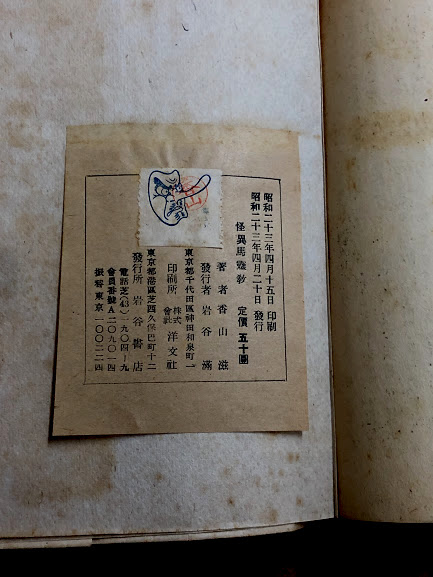 昭和二十三年四月十五日 印刷
昭和二十三年四月二十日 發行
怪異馬靈敎 定價 五十圓
著者 香山滋
發行者 岩谷滿
東京都千代田區神田和泉町一
印刷所 株式會社 洋文社
東京都港區芝西久保巴町十二
發行所 岩谷書店
電話芝(43)一九〇四―九
會員番號A二〇九〇一四
振替東京一〇〇二二四